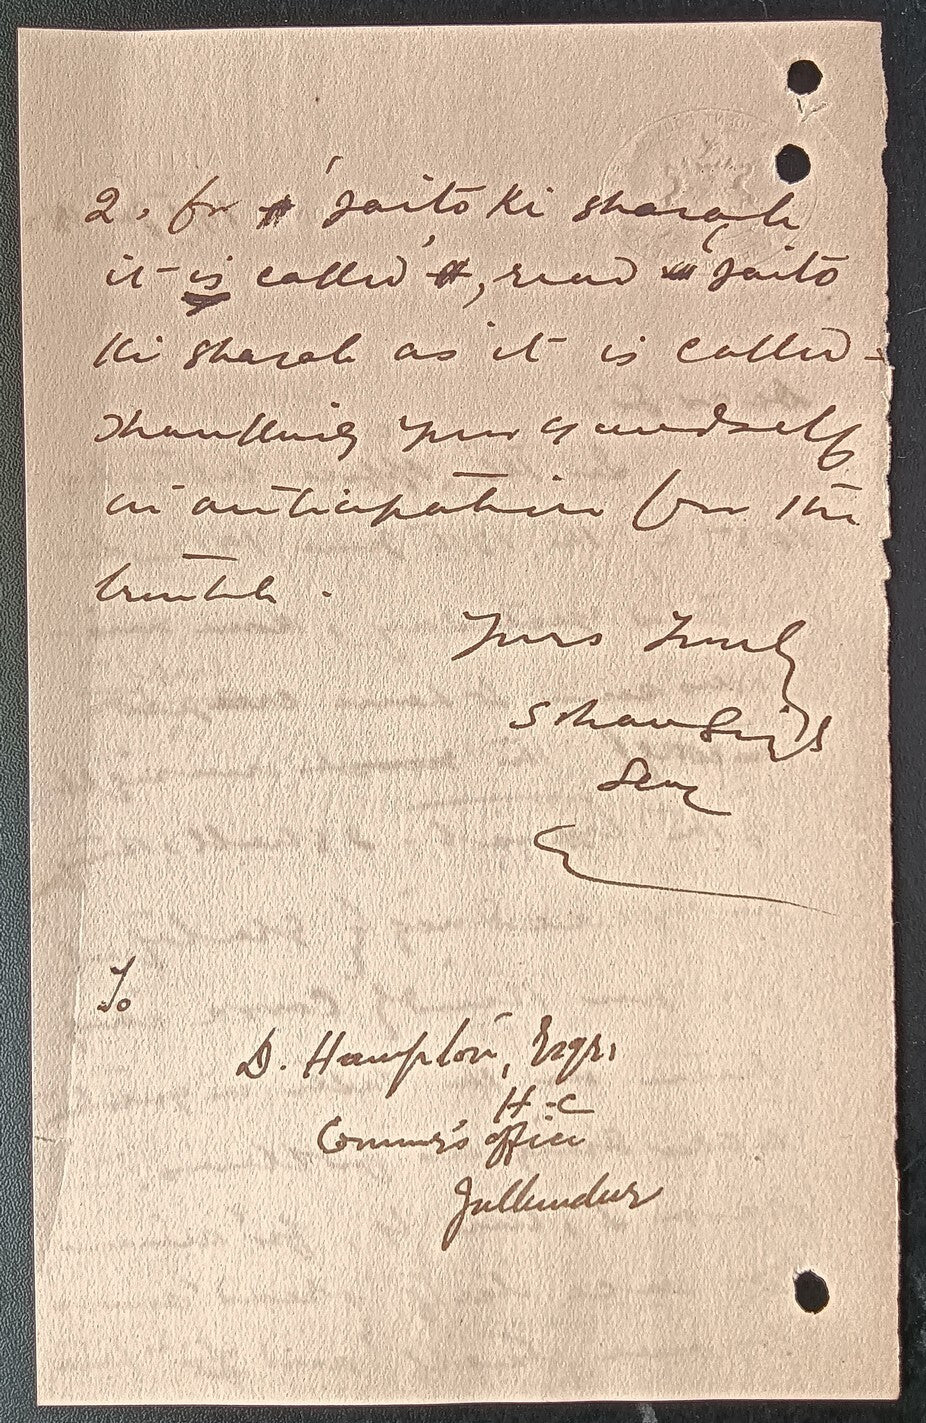 2. for 'Jaito Ki sharah
it is called', read 'Jaito
Ki sharah as it is called -
Thanking you and self
in anticipation for the
trouble.
Yours Truly
To
D. Hampton, Esqr,
H-C
Commr's office
Jullundur